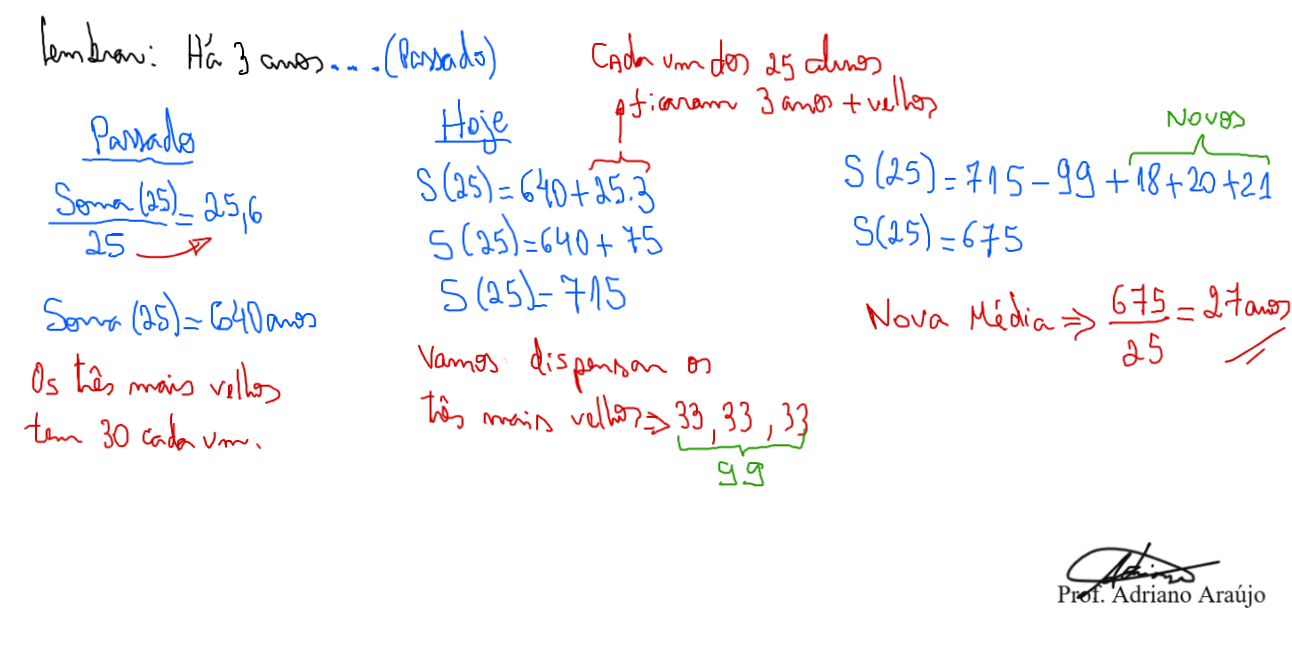 Lembrar: Há 3 anos....(Passado)
Passado
Soma (25) = 25,6
25
Soma (25) = 640 anos
Os três mais velhos
tem 30 cada um.
Cada um dos 25 alunos
ficaram 3 anos + velhos
Hoje
S (25) = 640 + 25.3
S (25) = 640 + 75
S (25) = 715
Vamos dispensar os
três mais velhos ⇒ 33, 33, 33
99
Novos
S (25) = 715 - 99 + 18 + 20 + 21
S(25) = 675
Nova Média ⇒ 675 = 27 anos
25
Prof. Adriano Araújo